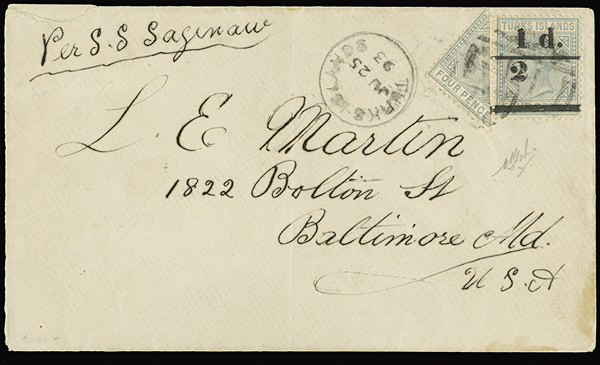 Per S.S Saginaw
TURKS ISLANDS
JY 25
93
FOUR PENCE
TURKS ISLANDS
1d.
2
L. E Martin
1822 Bolton St
Baltimore Md.
U.S.A